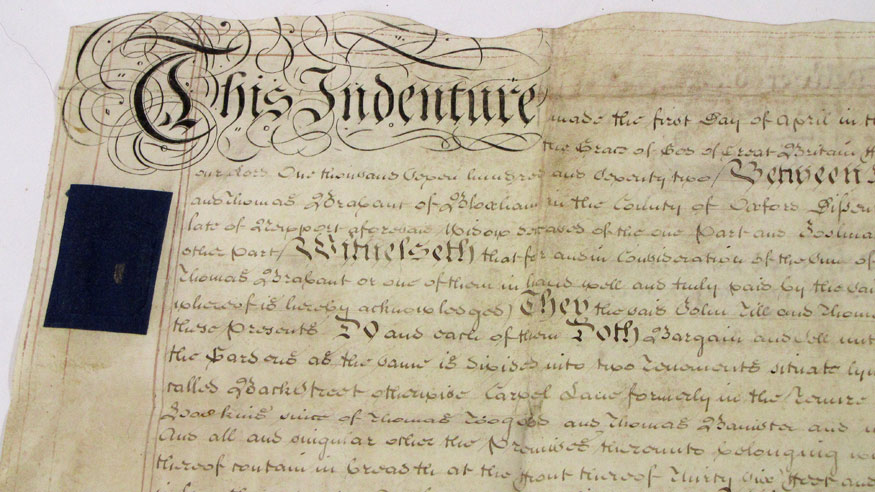 This Indenture made the first Day of April in th
the Grace of God of Great Britain
our Lord One thousand Seven hundred and Seventy two / Between
and Thomas Brabant of Bloxham in the County of Oxford Dissen
late of Newport aforesaid Widow deceased of the one Part and
other Part / Witnesseth that for and in Consideration of the Sum of
Thomas Brabant or one of them in hand well and truly paid by the Sai
whereof is hereby acknowledged) They the said John Till and Thoma
these Presents Do and each of them Doth Bargain and Sell unto
the Gardens as the same is divided into two Tenements situate lyin
called Back Street otherwise Lane formerly in the Tenure
since of Thomas and Thomas Banister and
And all and singular other the Premises thereunto belonging
thereof contain in breadth at the front thereof Thirty Six feet and